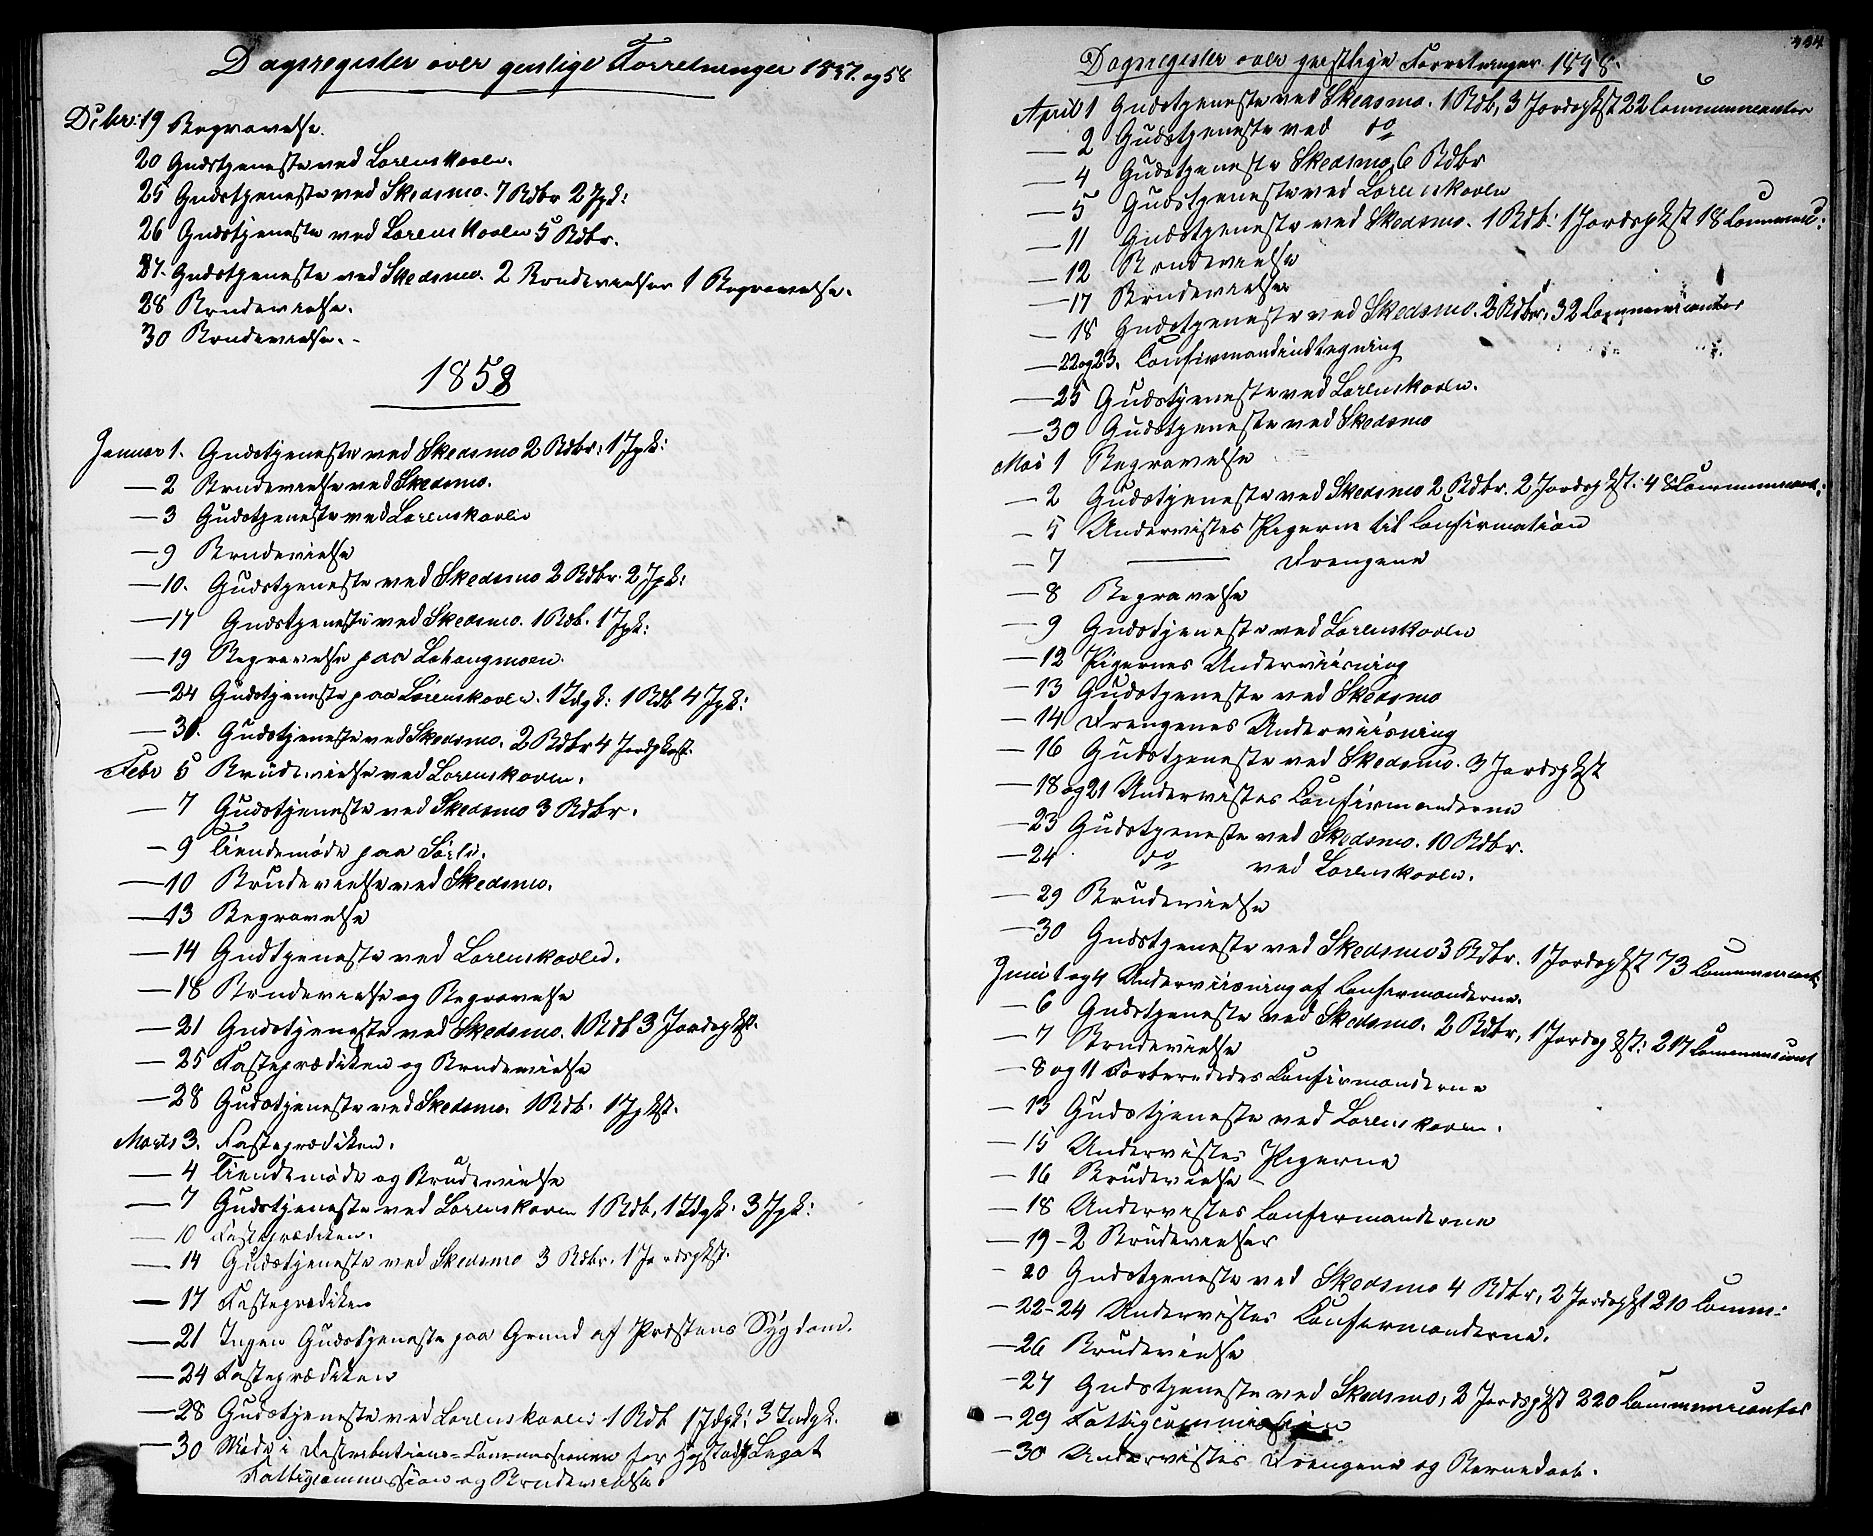 Dagsregister over geistlige Forretninger 1857. og 58
Decbr: 19 Begravelse.
20 Gudstjeneste ved Lørenskoven.
25 Gudstjeneste ved Skedsmo. 7 Rdbr 2 Jpk:
26 Gudstjeneste ved Lørenskoven 5 Rdbr.
27. Gudstjeneste ved Skedsmo. 2 Brudevielser 1 Begravelse.
28 Brudevielse.
30 Brudevielse.
1858
Januar 1. Gudstjeneste ved Skedsmo 2 Rdbr: 1 Jpk:
— 2 Brudevielse ved Skedsmo.
— 3 Gudstjeneste ved Lørenskoven
— 9 Brudevielse
— 10. Gudstjeneste ved Skedsmo 2 Rdbr. 2 Jpk:
— 17 Gudstjeneste ved Skedsmo. 1 Rdb. 1 Jpk:
— 19 Begravelse paa
— 24 Gudstjeneste paa Lørenskoven. 1 Idgk: 1 Rdb 4 Jpk:
— 31. Gudstjeneste ved Skedsmo. 2 Rdbr 4 Jordpkast.
Febr 5 Brudevielse ved Lørenskoven.
— 7 Gudstjeneste ved Skedsmo 3 Rdbr.
— 9 Tiendemøde paa
— 10 Brudevielse ved Skedsmo.
— 13 Begravelse
— 14 Gudtjeneste ved Lørenskoven.
— 18 Brudevielse og Begravelse
— 21 Gudstjeneste ved Skedsmo. 1 Rdb 3 Jordspkst.
— 25 Fasteprædiken og Brudevielse
— 28 Gudstjeneste ved Skedsmo. 1 Rdb. 1 Jpkst.
Marts 3. Fasteprædiken.
— 4 Tiendemøde og Brudevielse
— 7 Gudstjeneste ved Lørenskoven 1 Rdb, 1 Idgk. 3 Jpk:
— 10 Fasteprædiken.
— 14 Gudstjeneste ved Skedsmo 3 Rdbr. 1 Jordspkst.
— 17 Fasteprediken
— 21 Ingen Gudstjeneste paa Grund af Præstens Sygdom.
— 24 Fasteprædiken
— 28 Gudstjeneste ved Lørenskoven 1 Rdb 1 Idgk: 3 Indgk.
— 30 Møde i Distributions-Commissionen for Legat
Fattigcommission og Brudevielse
Dagsregister over geistlige Forretninger 1858.
April 1 Gudstjeneste ved Skedsmo. 1 Rdb, 3 Jordspkst 22 Communicanter
— 2 Gudstjeneste ved do
— 4 Gudstjeneste Skedsmo 6 Rdbr
— 5 Gudstjeneste ved Lørenskoven
— 11 Gudstjeneste ved Skedsmo. 1 Rdb: 1 Jordspkst 18 Communi:
— 12 Brudevielse
— 17 Brudevielse
— 18 Gudstjeneste ved Skedsmo. 2 Rdbr, 32 Communicanter
— 22 og 23. Confirmandindtegning
— 25 Gudstjeneste ved Lørenskoven.
— 30 Gudstjeneste ved Skedsmo
Mai 1 Begravelse
— 2 Gudstjeneste ved Skedsmo 2 Rdbr. 2 Jordspkst: 48 Communicant:
— 5 Undervistes Pigerne til Confirmation
— 7 — Drengene
— 8 Begravelse
— 9 Gudstjeneste ved Lørenskoven
— 12 Pigernes Underviisning
— 13 Gudstjeneste ved Skedsmo
— 14 Drengenes Underviisning
— 16 Gudstjeneste ved Skedsmo. 3 Jordspkst
— 18 og 21 Undervistes Confirmanderne
— 23 Gudstjeneste ved Skedsmo. 10 Rdbr.
— 24 do ved Lørenskoven.
— 29 Brudevielse
— 30 Gudstjeneste ved Skedsmo 3 Rdbr. 1 Jordspkst 73 Communicant
Juni 1 og 4 Underviisning af Confirmanderne.
— 6 Gudstjeneste ved Skedsmo. 2 Rdbr, 1 Jordspkst: 217 Communicant
— 7 Brudevielse
— 8 og 11 Forberededes Confirmanderne
— 13 Gudstjeneste ved Lørenskoven.
— 15 Undervistes Pigerne
— 16 Brudevielse
— 18 Undervistes Confirmanderne
— 19 - 2 Brudevielser
— 20 Gudstjeneste ved Skedsmo 4 Rdbr, 2 Jordspkst 210 Comm:
— 22-24 Undervistes Confirmanderne.
— 26 Brudevielse
— 27 Gudstjeneste ved Skedsmo, 2 Jordspkst 220 Communicanter
— 29 Fattigcommission
— 30 Undervistes Drengene og Barnedaab.